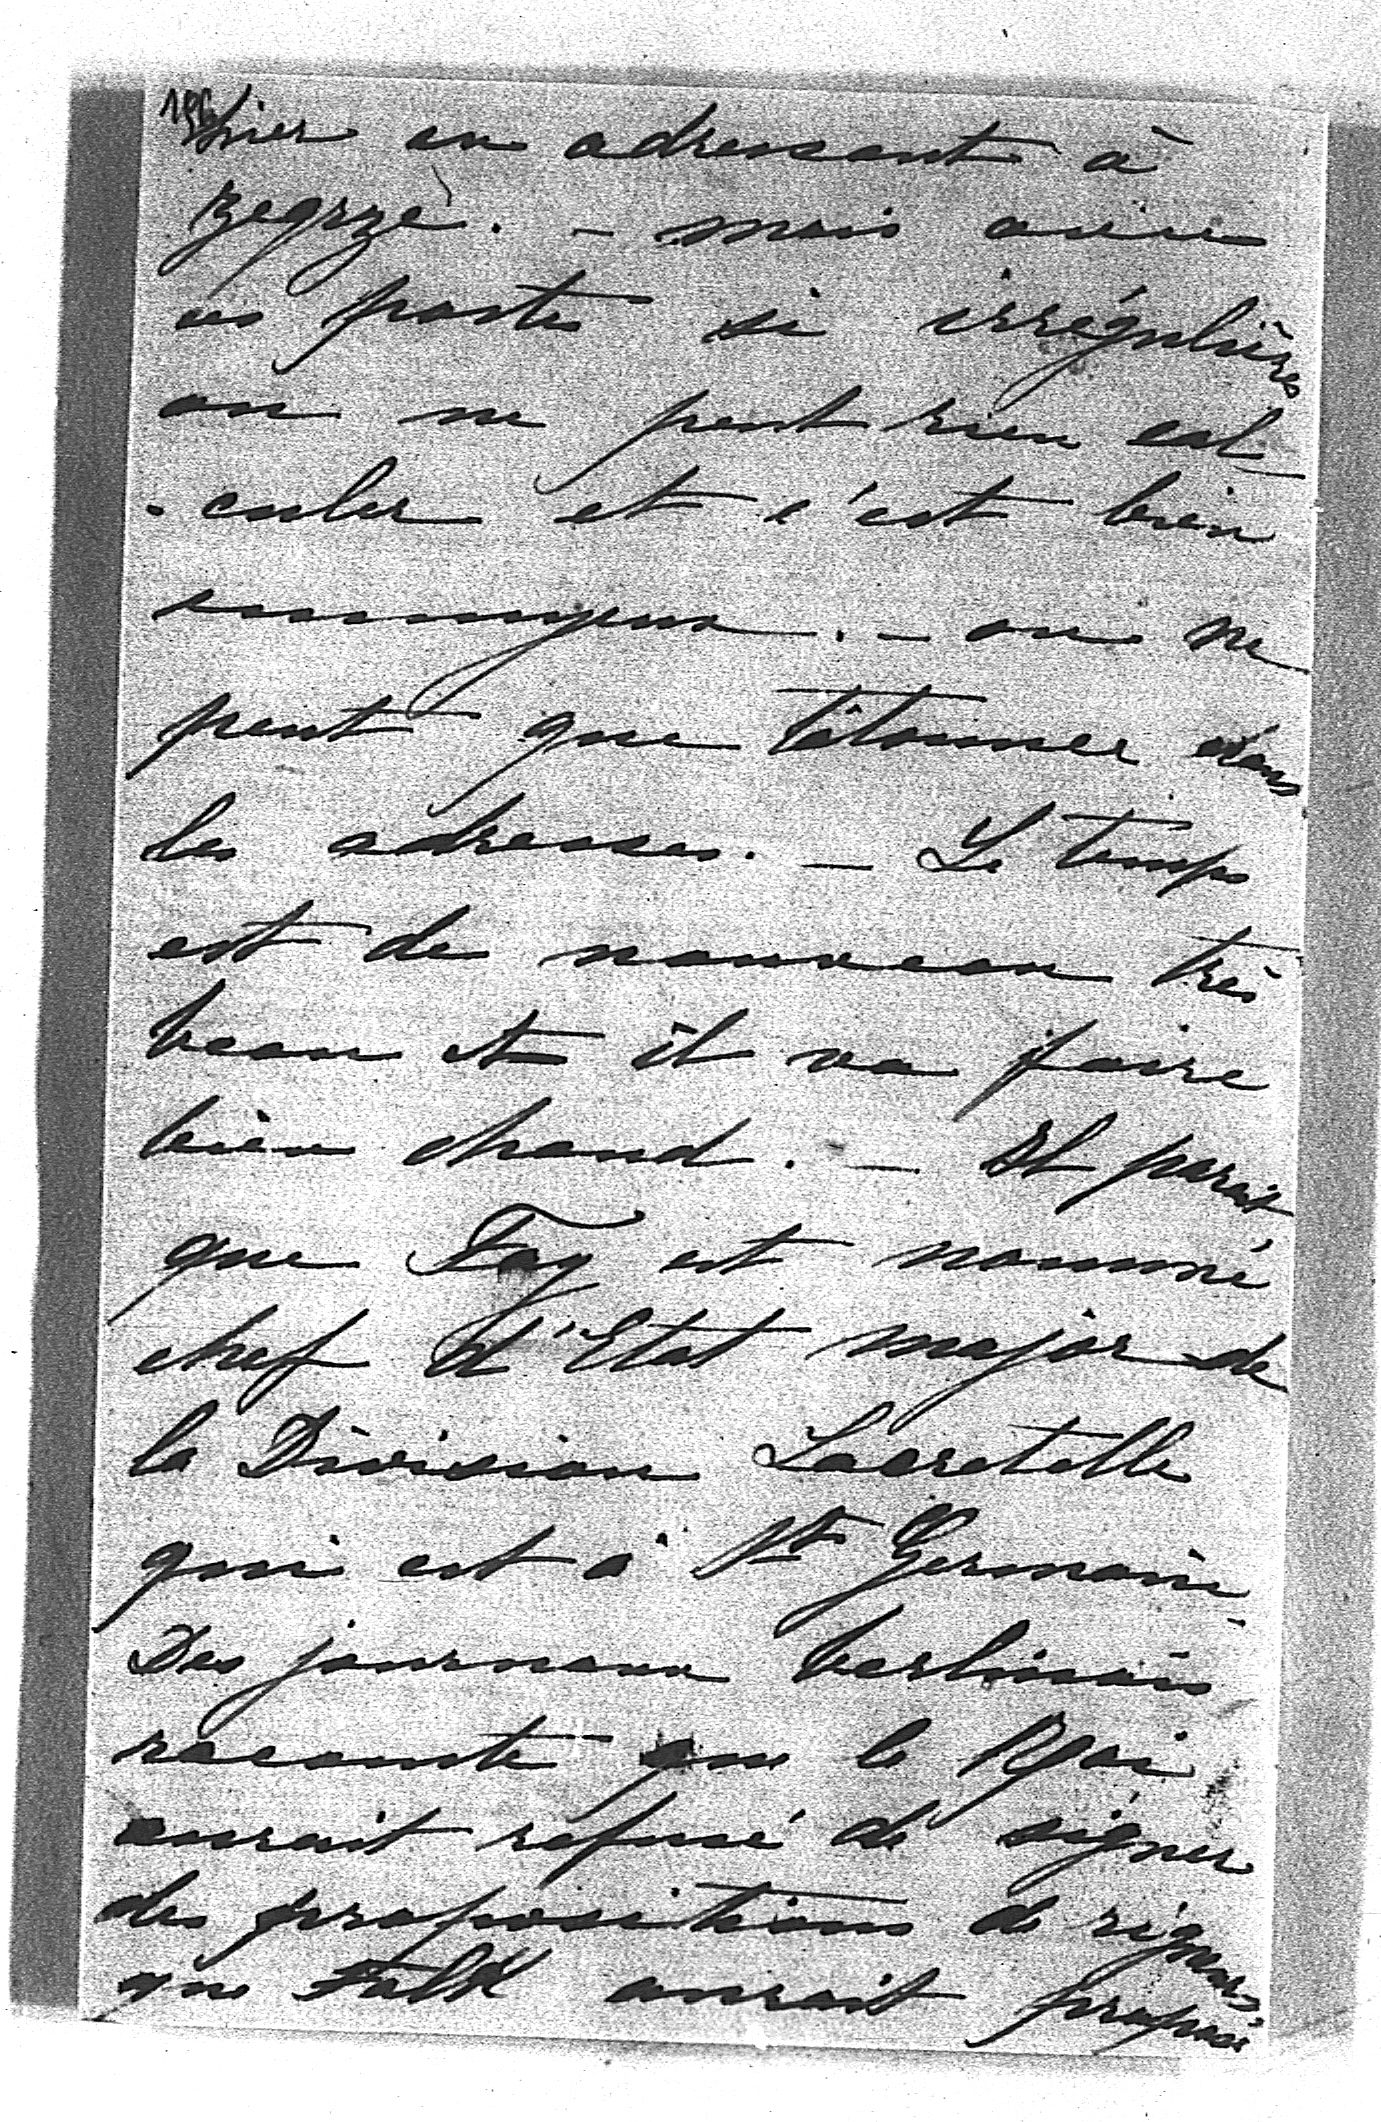 hier en adressant à
Zegrze. - mais avec
ces postes si irrégulières
on ne peut rien cal
- culer et c'est bien
ennuyeux. - on ne
peut que tâtonner dans
les adresses. - Le temps
est de nouveau très
beau et il va faire
bien chaud. - Il parait
que Fay est nommé
chef d'Etat major de
la Division Lacretelle
qui est à St Germain -
Des journaux berlinois
raconte que le Roi
aurait refusé de signer
des propositions de rigueurs
que Falk aurait proposé